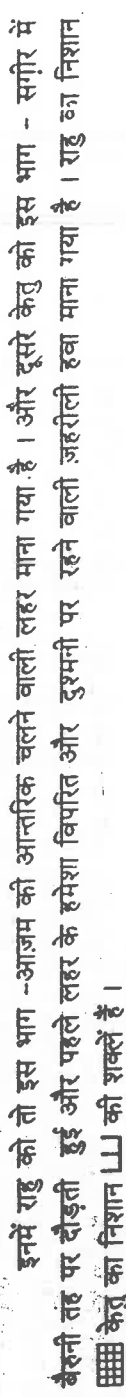 इनमें राहु को तो इस भाग -आज़म की आन्तरिक चलने वाली लहर माना गया है । और दूसरे केतु को इस भाग - सग़ीर में
बैरुनी तह पर दौड़ती हुई और पहले लहर के हमेशा विपरित और दुश्मनी पर रहने वाली ज़हरीली हवा माना गया है । राहु का निशान
केतु का निशान की शक्लें हैं ।